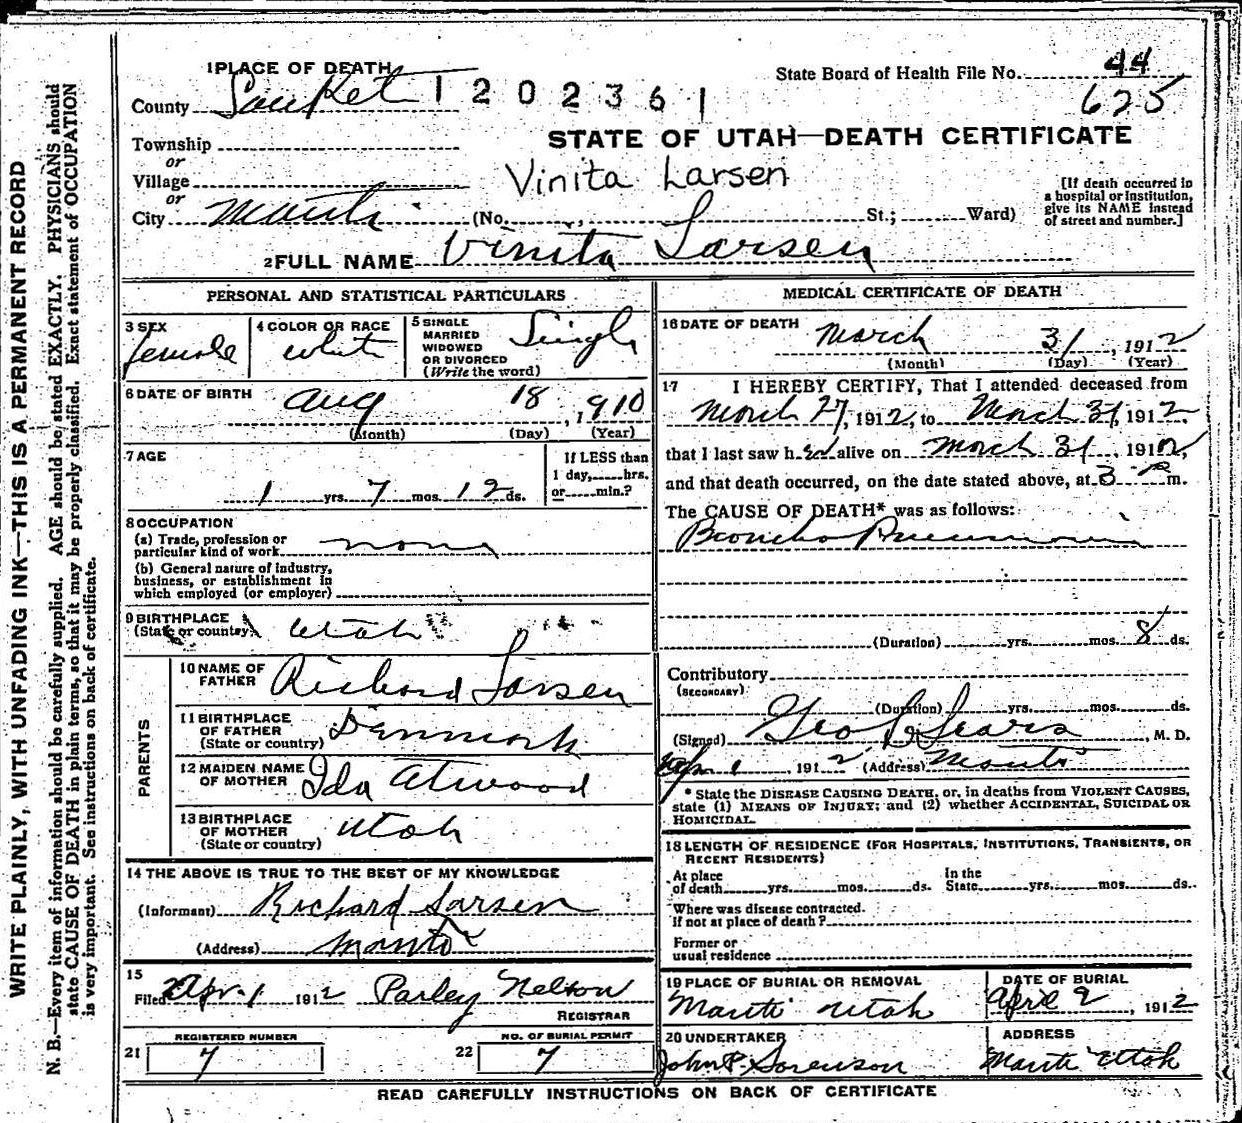 WRITE PLAINLY, WITH UNFADING INK—THIS IS A PERMANENT RECORD
N. B.—Every item of information should be carefully supplied. AGE should be stated EXACTLY. PHYSICIANS should
state CAUSE OF DEATH in plain terms, so that it may be properly classified. Exact statement of OCCUPATION
is very important. See instructions on back of certificate.
1 PLACE OF DEATH
County Sanpete 1202361
State Board of Health File No. 44
625
STATE OF UTAH—DEATH CERTIFICATE
Township
or
Village
or
Vinita Larsen
City Manti (No. , St.; Ward)
[If death occurred in
a hospital or institution,
give its NAME instead
of street and number.]
2 FULL NAME Vinita Larsen
PERSONAL AND STATISTICAL PARTICULARS
3 SEX
female
4 COLOR OR RACE
white
5 SINGLE
MARRIED
WIDOWED
OR DIVORCED
(Write the word)
Single
6 DATE OF BIRTH
Aug 18, 1910
(Month) (Day) (Year)
7 AGE
1 yrs. 7 mos. 12 ds.
If LESS than
1 day, hrs.
or min.?
8 OCCUPATION
(a) Trade, profession or
particular kind of work none
(b) General nature of industry,
business, or establishment in
which employed (or employer)
9 BIRTHPLACE
(State or country) Utah
PARENTS
10 NAME OF
FATHER Richard Larsen
11 BIRTHPLACE
OF FATHER
(State or country) Denmark
12 MAIDEN NAME
OF MOTHER Ida Atwood
13 BIRTHPLACE
OF MOTHER
(State or country) Utah
14 THE ABOVE IS TRUE TO THE BEST OF MY KNOWLEDGE
(Informant) Richard Larsen
(Address) Manti
15
Filed Apr. 1 1912 Parley Nelson
REGISTRAR
REGISTERED NUMBER
21 7
NO. OF BURIAL PERMIT
22 7
MEDICAL CERTIFICATE OF DEATH
16 DATE OF DEATH March 31, 1912
(Month) (Day) (Year)
17 I HEREBY CERTIFY, That I attended deceased from
March 27, 1912, to March 31, 1912.
that I last saw her alive on March 31, 1912,
and that death occurred, on the date stated above, at 3 P m.
The CAUSE OF DEATH* was as follows:
Broncho Pneumonia
(Duration) yrs. mos. 8 ds.
Contributory
(SECONDARY)
(Duration) yrs. mos. ds.
(Signed) Geo L Sears, M. D.
Apr 1 1912 (Address) Manti
* State the DISEASE CAUSING DEATH, or, in deaths from VIOLENT CAUSES,
state (1) MEANS OF INJURY; and (2) whether ACCIDENTAL, SUICIDAL OR
HOMICIDAL.
18 LENGTH OF RESIDENCE (FOR HOSPITALS, INSTITUTIONS, TRANSIENTS, OR
RECENT RESIDENTS)
At place
of death yrs. mos. ds.
In the
State yrs. mos. ds.
Where was disease contracted.
if not at place of death?
Former or
usual residence
19 PLACE OF BURIAL OR REMOVAL
Manti Utah
DATE OF BURIAL
April 2, 1912
20 UNDERTAKER
John P. Sorenson
ADDRESS
Manti Utah
READ CAREFULLY INSTRUCTIONS ON BACK OF CERTIFICATE